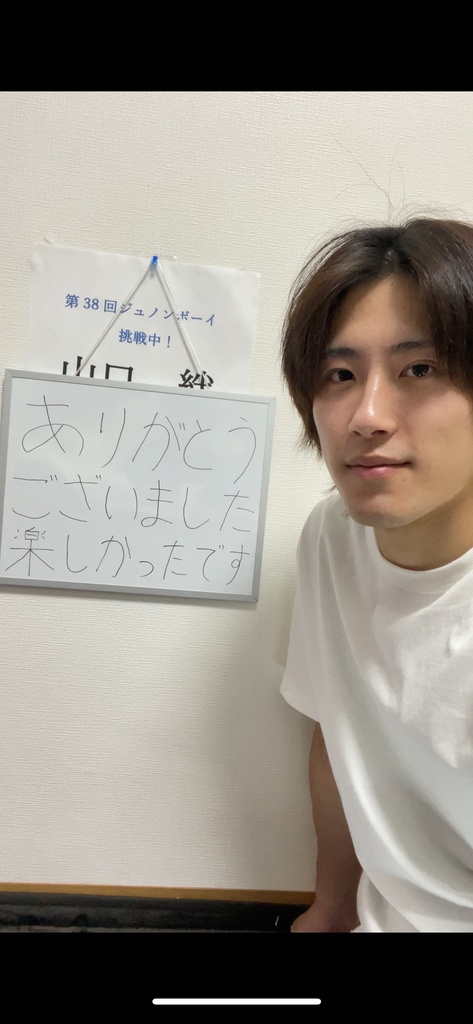 第38回ジュノンボーイ
挑戦中！
山口
ありがとう
ございました
楽しかったです